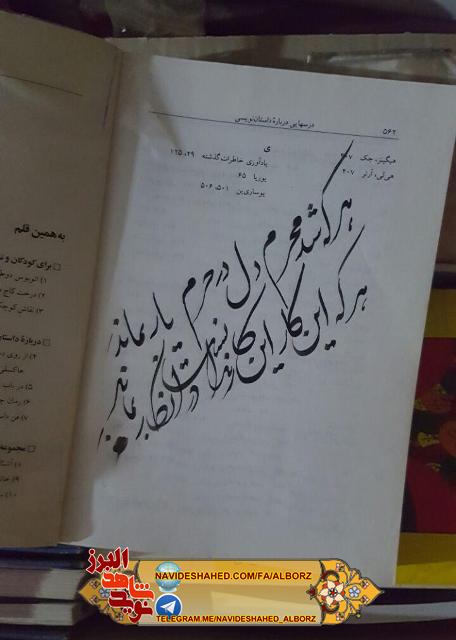 ۵۶۲ درسهایی دربارهٔ داستان‌نویسی
هیگینز، جک
هی‌لی، آرتر ۲۰۷
ی
یادآوری خاطرات گذشته ۲۹، ۱۲۵
یوریا ۶۵
یوساری‌ین ۵۰۱، ۵۰۶
هر که شد محرم دل در حرم یار بماند
هر که این کار این کار ندانست در انکار بماند
به همین قلم
برای کودکان و
۱) اتوبوس
۲) درخت کاج
۳) نقاش کوچک
دربارهٔ داستان
۴) از روی
۵) در باب
۶) رمان
۷) من
مجموعه
نوید شاهد البرز
NAVIDESHAHED.COM/FA/ALBORZ
TELEGRAM.ME/NAVIDESHAHED_ALBORZ